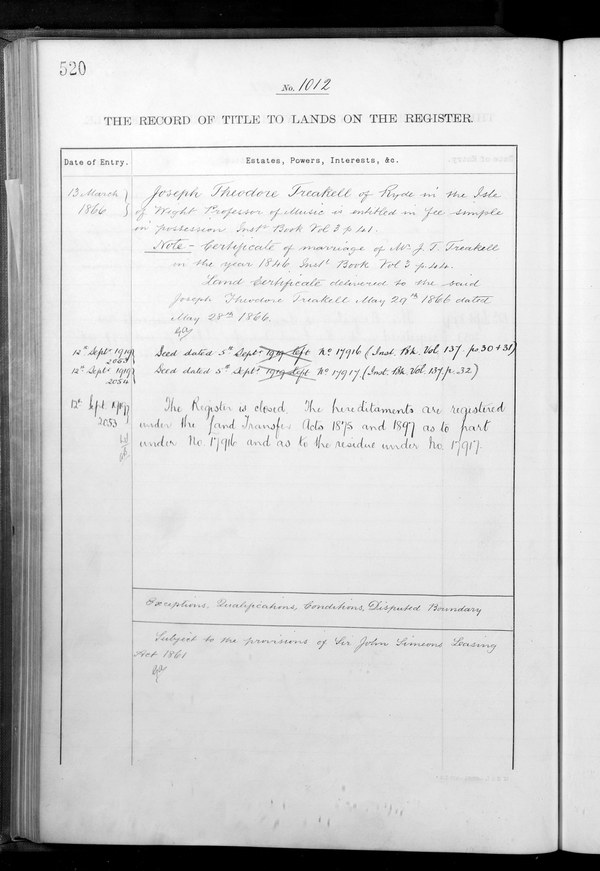 520
No. 1012
THE RECORD OF TITLE TO LANDS ON THE REGISTER.
Date of Entry.
Estates, Powers, Interests, &c.
13 March
1866
Joseph Theodore Treakell of Ryde in the Isle
of Wight Professor of Music is entitled in fee simple
in possession. Inst. Book Vol 3 p 41.
Note - Certificate of marriage of Mr J. T. Treakell
in the year 1846 Inst. Book Vol 3 p. 44.
Land Certificate delivered to the said
Joseph Theodore Treakell May 29th 1866 dated
May 28th 1866.
12th Septr 1919
Deed dated 5th Septr 1919 No 17916 (Inst. Bk. Vol. 137. p 30 + 31)
12th Septr 1919
2054
Deed dated 5th Septr 1919 No 17917 (Inst. Bk. Vol. 137. p. 32)
12th Sept 1919
2053
The Register is closed. The hereditaments are registered
under the Land Transfer Acts 1875 and 1897 as to part
under No. 17916 and as to the residue under No. 17917.
Exceptions, Qualifications, Conditions, Disputed Boundary
Subject to the provisions of Sir John Simeons Leasing
Act 1861